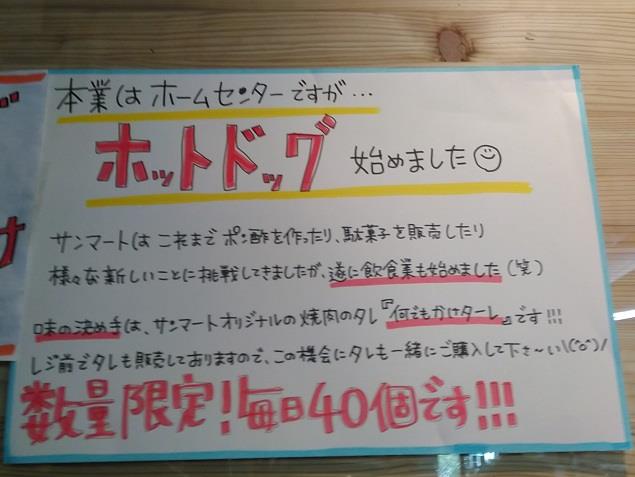 本業はホームセンターですが…
ホットドッグ 始めました
サンマートはこれまでポン酢を作ったり、駄菓子を販売したり
様々な新しいことに挑戦してきましたが、遂に飲食業も始めました(笑)
味の決め手は、サンマートオリジナルの焼肉のタレ『何でもかけターレ』です!!!
レジ前でタレも販売しておりますので、この機会にタレも一緒にご購入して下さ〜い\(^o^)/
数量限定!毎日40個です!!!